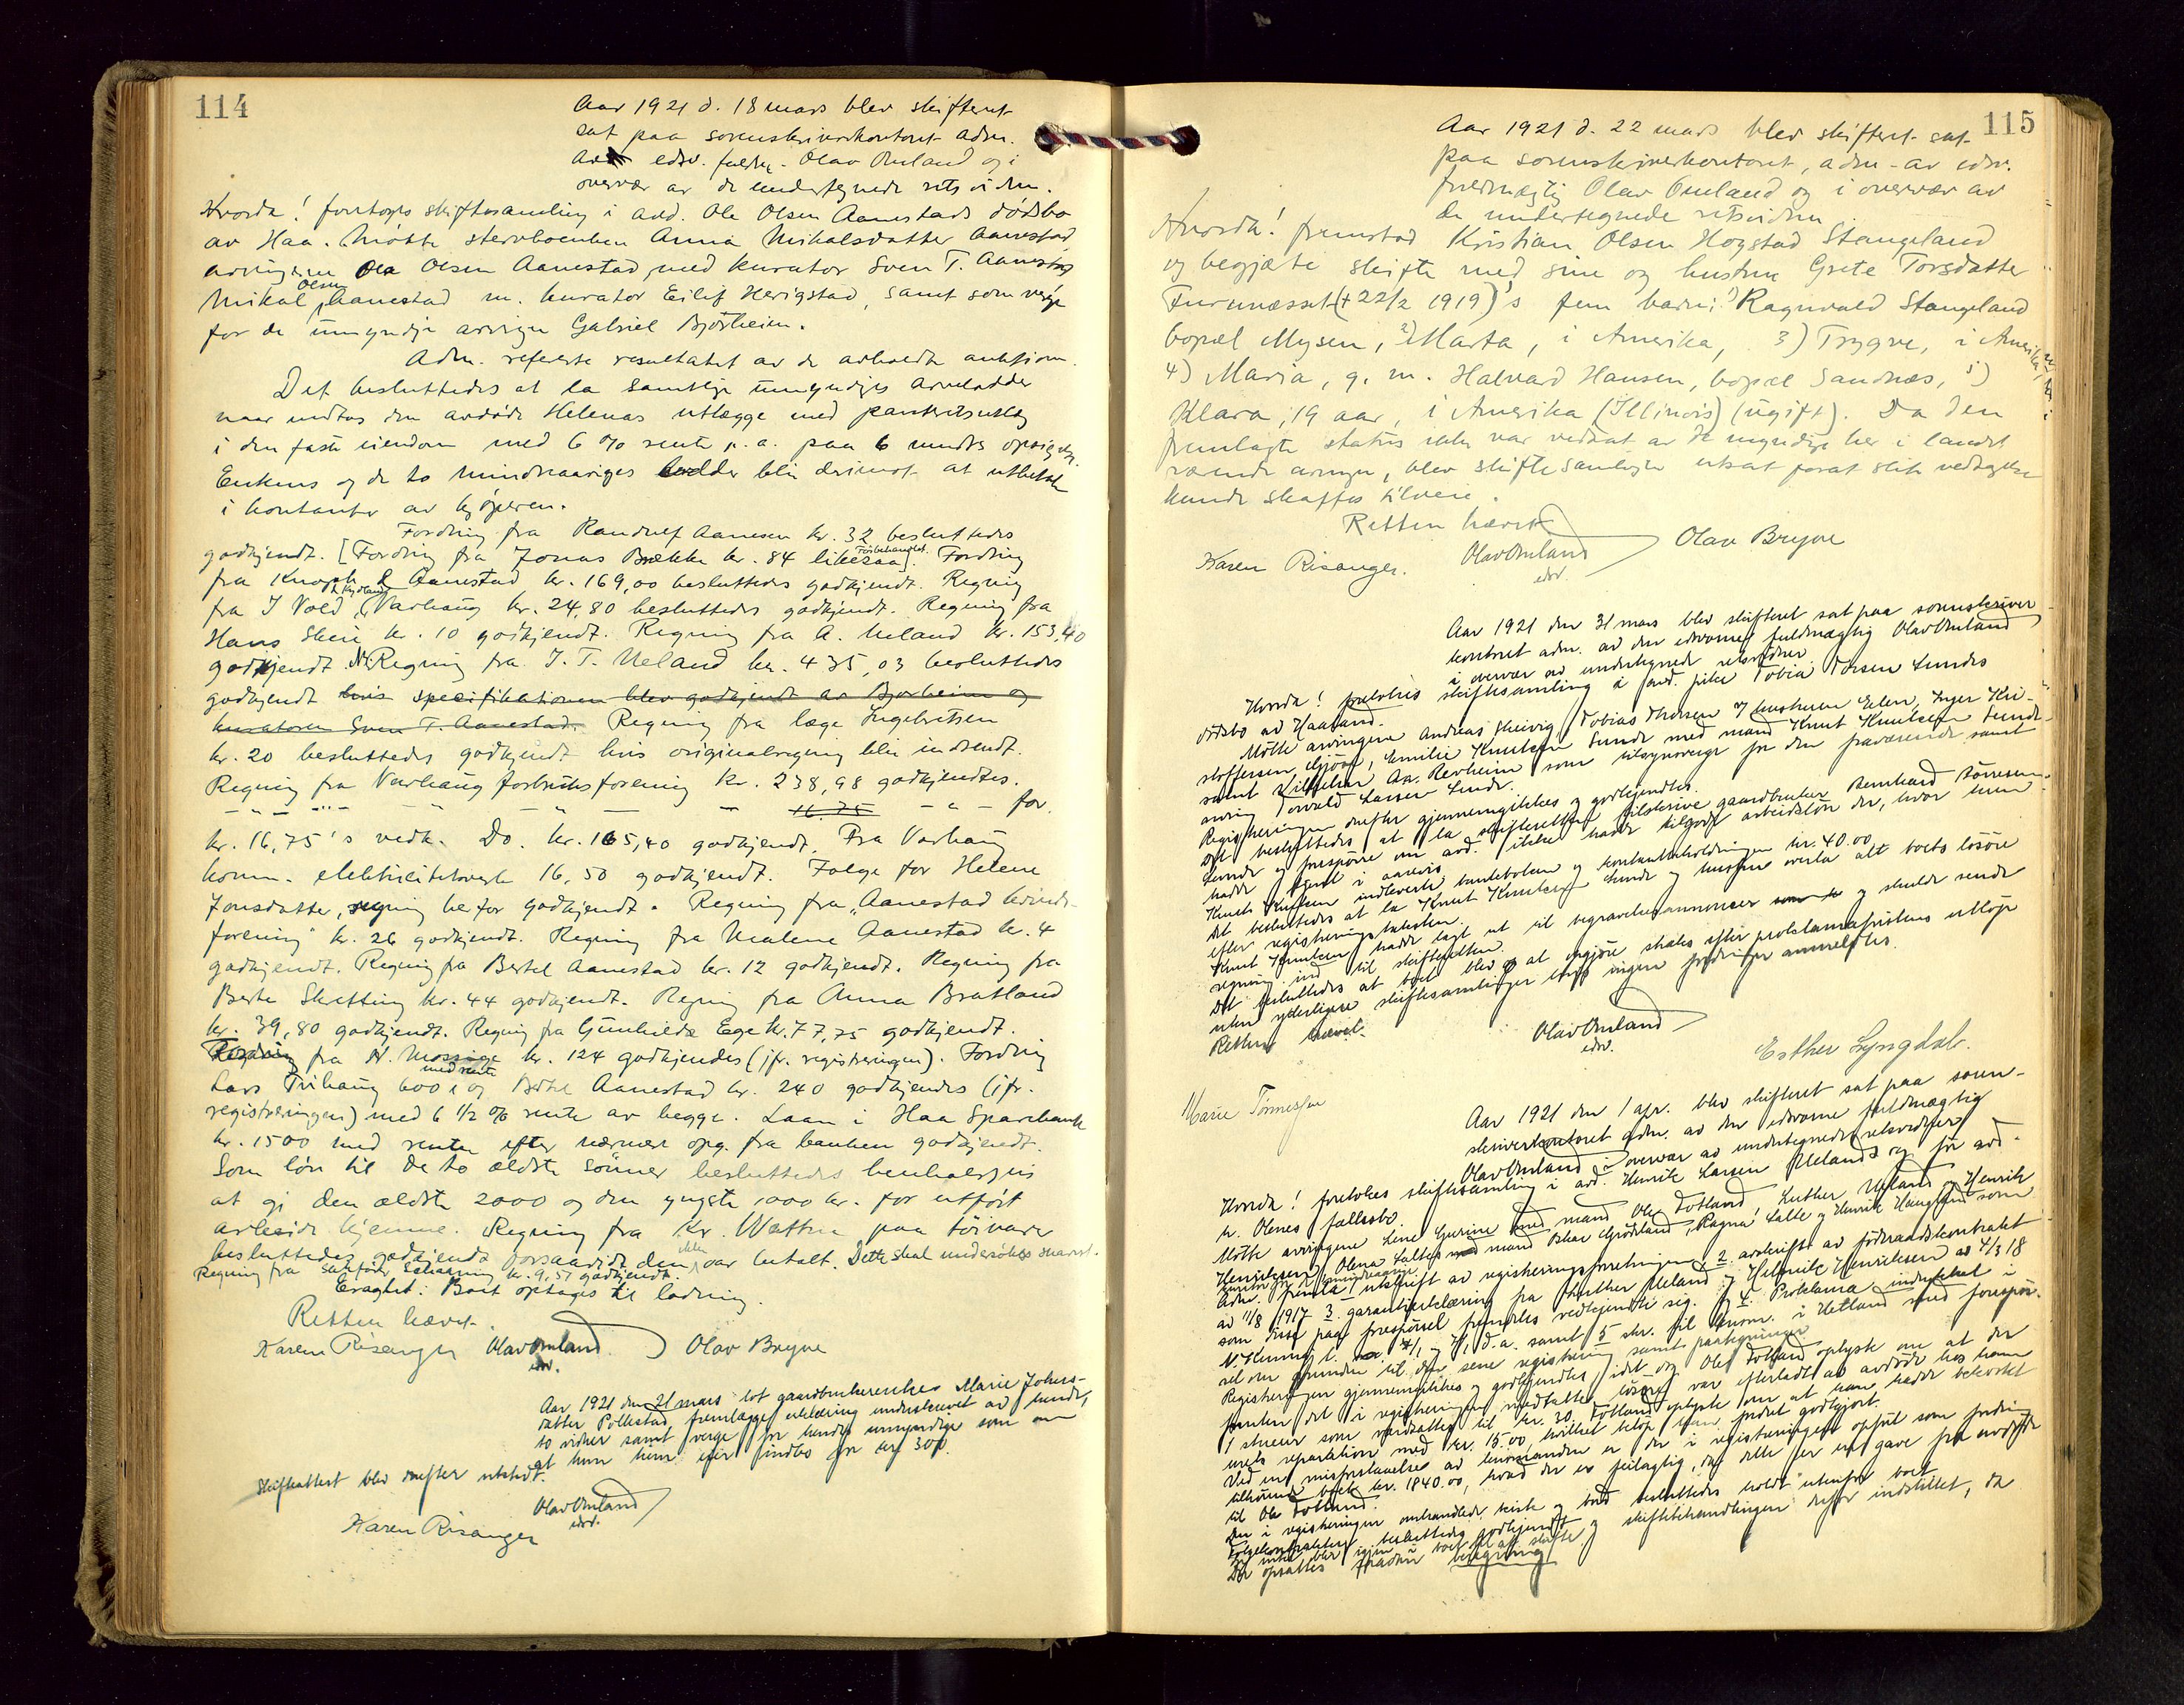 114
Aar 1921 d. 18 mars blev skifteret
sat paa sorenskriverkontoret adm.
av edsv. fuldm. Olav Omland og i
overvær av de undertegnede retsvidner.
Hvorda! foretoges skiftesamling i avd. Ole Olsen Aanestads dödsbo
av Haa. Mötte stervboenken Anna Mikalsdatter Aanestad
arvingerne Ola Olsen Aanestad med kurator Sven T. Aanestad
Mikal Olsen Aanestad m. kurator Eilif Herigstad, samt som verge
for de umyndige arvinger Gabriel Bjorheim.
Adm. refererte resultatet av de avholdte auksjoner.
Det besluttedes at la samtlige umyndiges arvelodder
naar undtas den avdöde Helenas utlægge med panteretsutlæg
i den faste eiendom med 6 % rente p. a. paa 6 mndrs opsigelse.
Enkens og de to mindreaariges lodder blir derimot at utbetale
i kontanter av kjöperen.
Fordring fra Randulf Aanesen kr. 32 besluttedes
godkjendt. [Fordring fra Jonas Brække kr. 84 likesaa]. Forbehandlet. Fordring
fra Knoph & Aanestad kr. 169,00 besluttedes godkjendt. Regning
fra J Vold, Varhaug kr. 24,80 besluttedes godkjendt. Regning fra
Hans Skeie kr. 10 godkjendt. Regning fra A. Ueland kr. 153,40
godkjendt Regning fra J. T. Ueland kr. 435,03 besluttedes
godkjendt hvis specifikationen blev godkjendt av Bjorheim og
kuratoren Sven T. Aanestad. Regning fra læge Ingebretsen
kr. 20 besluttedes godkjendt hvis originalregning blir indsendt.
Regning fra Varhaug forbruksforening kr. 238,98 godkjendtes.
- " - " - " - " - 16.75 - " - for
kr. 16,75's vedk. Do. kr. 165,40 godkjendt. Fra Varhaug
komm. elektricitetsverk 16,50 godkjendt. Fölge for Helene
Jonsdatter, regning herfor godkjendt. Regning fra "Aanestad kvinde-
forening" kr. 26 godkjendt. Regning fra Malene Aanestad kr. 4
godkjendt. Regning fra Bertel Aanestad kr. 12 godkjendt. Regning fra
Berte Skretting kr. 44 godkjendt. Regning fra Anna Bratland
kr. 39,80 godkjendt. Regning fra Gunhilds Ege kr. 77,75 godkjendt.
Fordring fra N. Mossige kr. 124 godkjendes (jfr. registreringen). Fordring
Lars Trihaug 600 med rente og Bertel Aanestad kr. 240 godkjendes (jfr.
registreringen) med 6 1/2 % rente av begge. Laan i Haa Sparebank
kr. 1500 med renter efter nærmere opg. fra banken godkjendt.
Som lön til de to ældste sönner besluttedes
at gi den ældste 2000 og den yngste 1000 kr. for utfört
arbeide hjemme. Regning fra Kr. Wattne paa
besluttedes godkjendt forsaavidt den ikke var betalt. Dette skal undersökes snarest.
Regning fra sakförer kr. 9,57 godkjendt.
Eragtet: Boet optages til lodning.
Retten hævet.
Karen Risanger Olav Omland Olav Bryne
edsv.
Aar 1921 den 21 mars lot gaardbrukerenke Marie Johns-
datter Pollestad, fremlægge erklæring underskrevet av hende,
to vidner samt verge for hendes umyndige sön om
at hun kun eier indbo for kr 300.
Skifteattest blev derefter utstedt.
Olav Omland
edsv.
Karen Risanger
115
Aar 1921 d. 22 mars blev skifteret sat
paa sorenskriverkontoret, adm. av edsv.
fuldmægtig Olav Omland og i overvær av
de undertegnede retsvidner
Hvorda! fremstod Kristian Olsen Hogstad Stangeland
og begjærte skifte med sine og hustru Grete Torsdatter
Furunæsset († 22/2 1919)'s fem barn: 1) Ragnvald Stangeland
bopæl Mysen, 2) Marta, i Amerika, 3) Trygve, i Amerika,
4) Maria, g. m. Halvard Hansen, bopæl Sandnæs, 5)
Klara, 19 aar, i Amerika (Illinois) (ugift). Da den
fremlagte status ikke var vedtat av de myndige her i landet
værende arvinger, blev skiftesamlingen utsat forat slik vedtagelse
kunde skaffes tilveie.
Retten hævet
Karen Risanger. Olav Omland Olav Bryne
edsv.
Aar 1921 den 31 mars blev skifteret sat paa sorenskriver
kontoret adm. av den edsvorne fuldmægtig Olav Omland
i overvær av undertegnede retsvidner
Hvorda! foretokes skiftesamling i avd. pike Tobia Torsen Lundes
dödsbo av Haaland.
Mötte arvingerne Andreas Skeivig, Tobias Thorsen, Elen, Inger Kri-
stoffersen Gjöse, Emilie Knutsen Sunde med mand Knut Knutsen Sunde
samt Vilhelm Aa. Revheim som tilsynsverge for den fraværende samt
arving Torvald Larsen Sunde.
Registreringen derefter gjennemgikkes og godkjendtes.
Det besluttedes at la skifteretten tilskrive gaardbruker Bernhard Törresen
Sunde og forespörre om avd. ikke hadde tilgode arbeidslön der, hvor hun
hadde tjent i aarevis.
Knut Knutsen indleverte bankboken og kontantbeholdningen kr. 40.00
Det besluttedes at la Knut Knutsen Sunde og hustru overta alt boets lösöre
efter registreringstaksten.
Knut Knutsen hadde lagt ut til begravelsesannoncer og skulde sende
regning ind til skifteretten.
Det besluttedes at boet blev at opgjöre straks efter proklamafristens utlöp
uten yderligere skiftesamlinger ingen fordringer anmeldtes.
Retten hævet.
Olav Omland
edsv.
Esther Lyngdal.
Marie Tönnessen
Aar 1921 den 1 apr. blev skifteret sat paa soren-
skriverkontoret adm. av den edsvorne fuldmægtig
Olav Omland i overvær av undertegnede retsvidner
Hvorda! foretokes skiftesamling i avd. Henrik Larsen Uelands og för avd.
h. Olenes fællesbo.
Mötte arvingerne Lene Gurine med mand Ole Totland, Luther Ueland og Henrik
Henriksen, Olena Salte med mand Oskar Grödeland, Ragna Salte og Henrik Haugland som
kurator for de mindreaarige
Adm. fremla 1 utskrift av registreringsforretningen, 2 avskrift av föderaadskontrakt
av 11/8 1917 3 garantierklæring fra Luther Ueland og Henrik Henriksen av 4/3 18
som disse paa forespörsel fremdeles vedkjendte sig. 4 Proklama indrykket i
N Kunngj. t. 7/1 og d. a. samt 5 skr. til lensm. i Hetland med forespör-
sel om grunden til den sene registrering samt paategninger
Registreringen gjennemgikkes og godkjendtes idet dog Ole Totland oplyste om at der
foruten det i registreringen medtattes lösöre var efterladt av avdöde hos ham
1 stueur som værdsattes til kr. 30. Totland oplyste om at han hadde bekostet
urets reparation med kr. 15.00, hvilket belöp han fordret godtgjort.
Ved en misforstaaelse av lensmanden er der i registreringen opfört som fordring
tilhörende boet kr. 1840.00, hvad der er feilagtig, da dette er en gave fra avdöde
til Ole Totland.
Den i registreringen omhandlede kiste og bord besluttedes holdt utenfor boet.
Fölgekontrakten besluttedes godkjendt og skiftebehandlingen derfor indstillet, da
der intet blir igjen i boet til at skifte.
Der opsattes saadan beregning